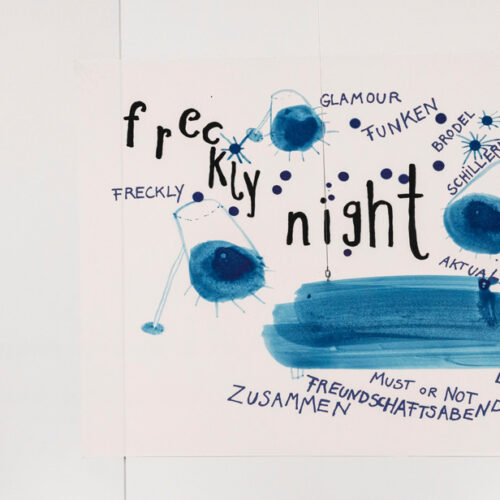 freckly
night
GLAMOUR
FUNKEN
BRODEL
SCHILLERN
FRECKLY
AKTUAL
MUST OR NOT
FREUNDSCHAFTSABEND
ZUSAMMEN